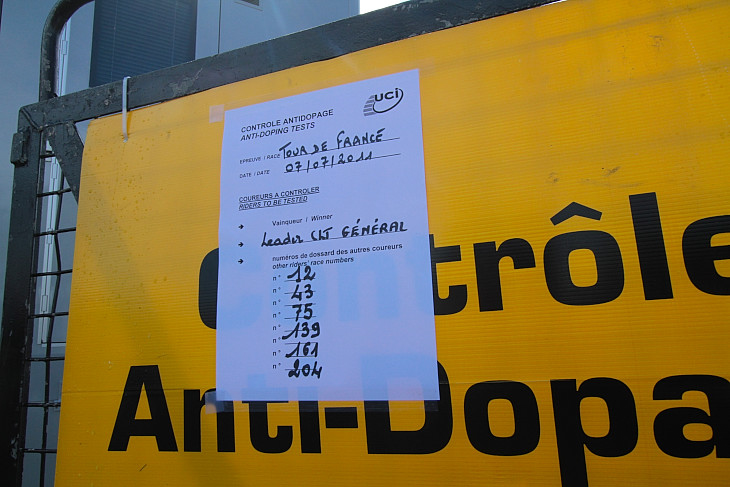 uci
CONTROLE ANTIDOPAGE
ANTI-DOPING TESTS
EPREUVE / RACE TOUR DE FRANCE
DATE / DATE 07/07/2011
COUREURS A CONTROLER
RIDERS TO BE TESTED
Vainqueur / Winner
Leader CLT GÉNÉRAL
numéros de dossard des autres coureurs
other riders' race numbers
n° 12
n° 43
n° 75
n° 139
n° 161
n° 204
Contrôle
Anti-Dopa